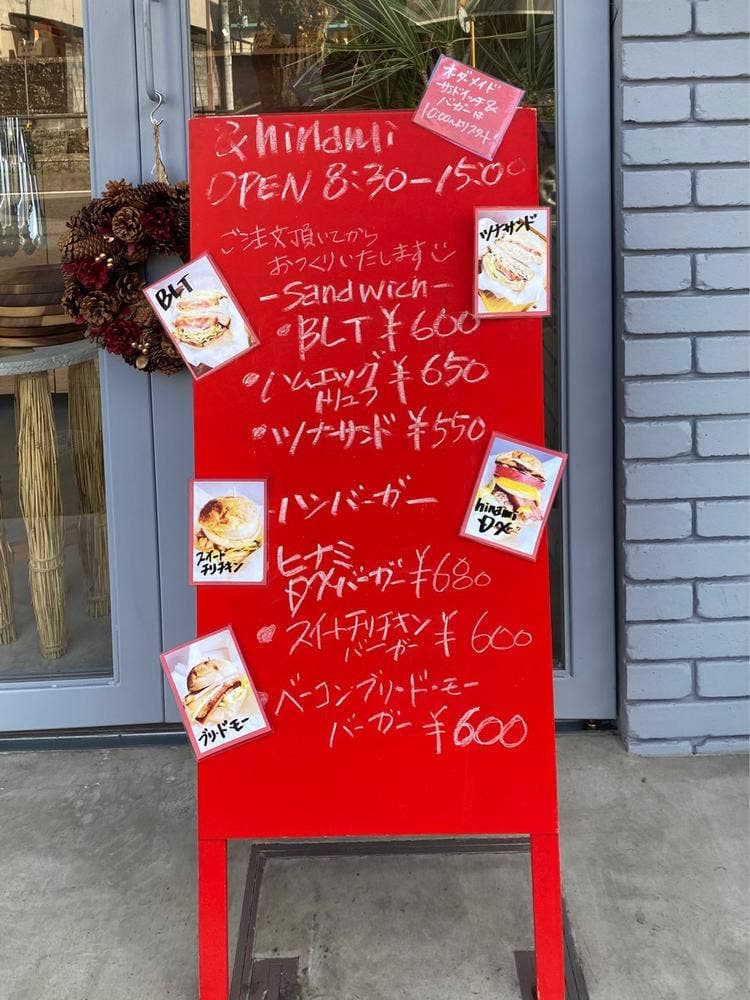 オーダーメイド
サンドイッチ&
バーガーは
10:00よりスタート!
&hinami
OPEN 8:30-15:00
ご注文頂いてから
おつくりいたします
-Sandwich-
・BLT ¥600
・ハムエッグ
トリュフ ¥650
・ツナサンド ¥550
ツナサンド
BLT
ハンバーガー
hinami
DX
ヒナミ
DXバーガー ¥680
スイート
チリチキン
・スイートチリチキン
バーガー ¥600
・ベーコンブリ・ド・モー
バーガー ¥600
ブリ・ド・モー